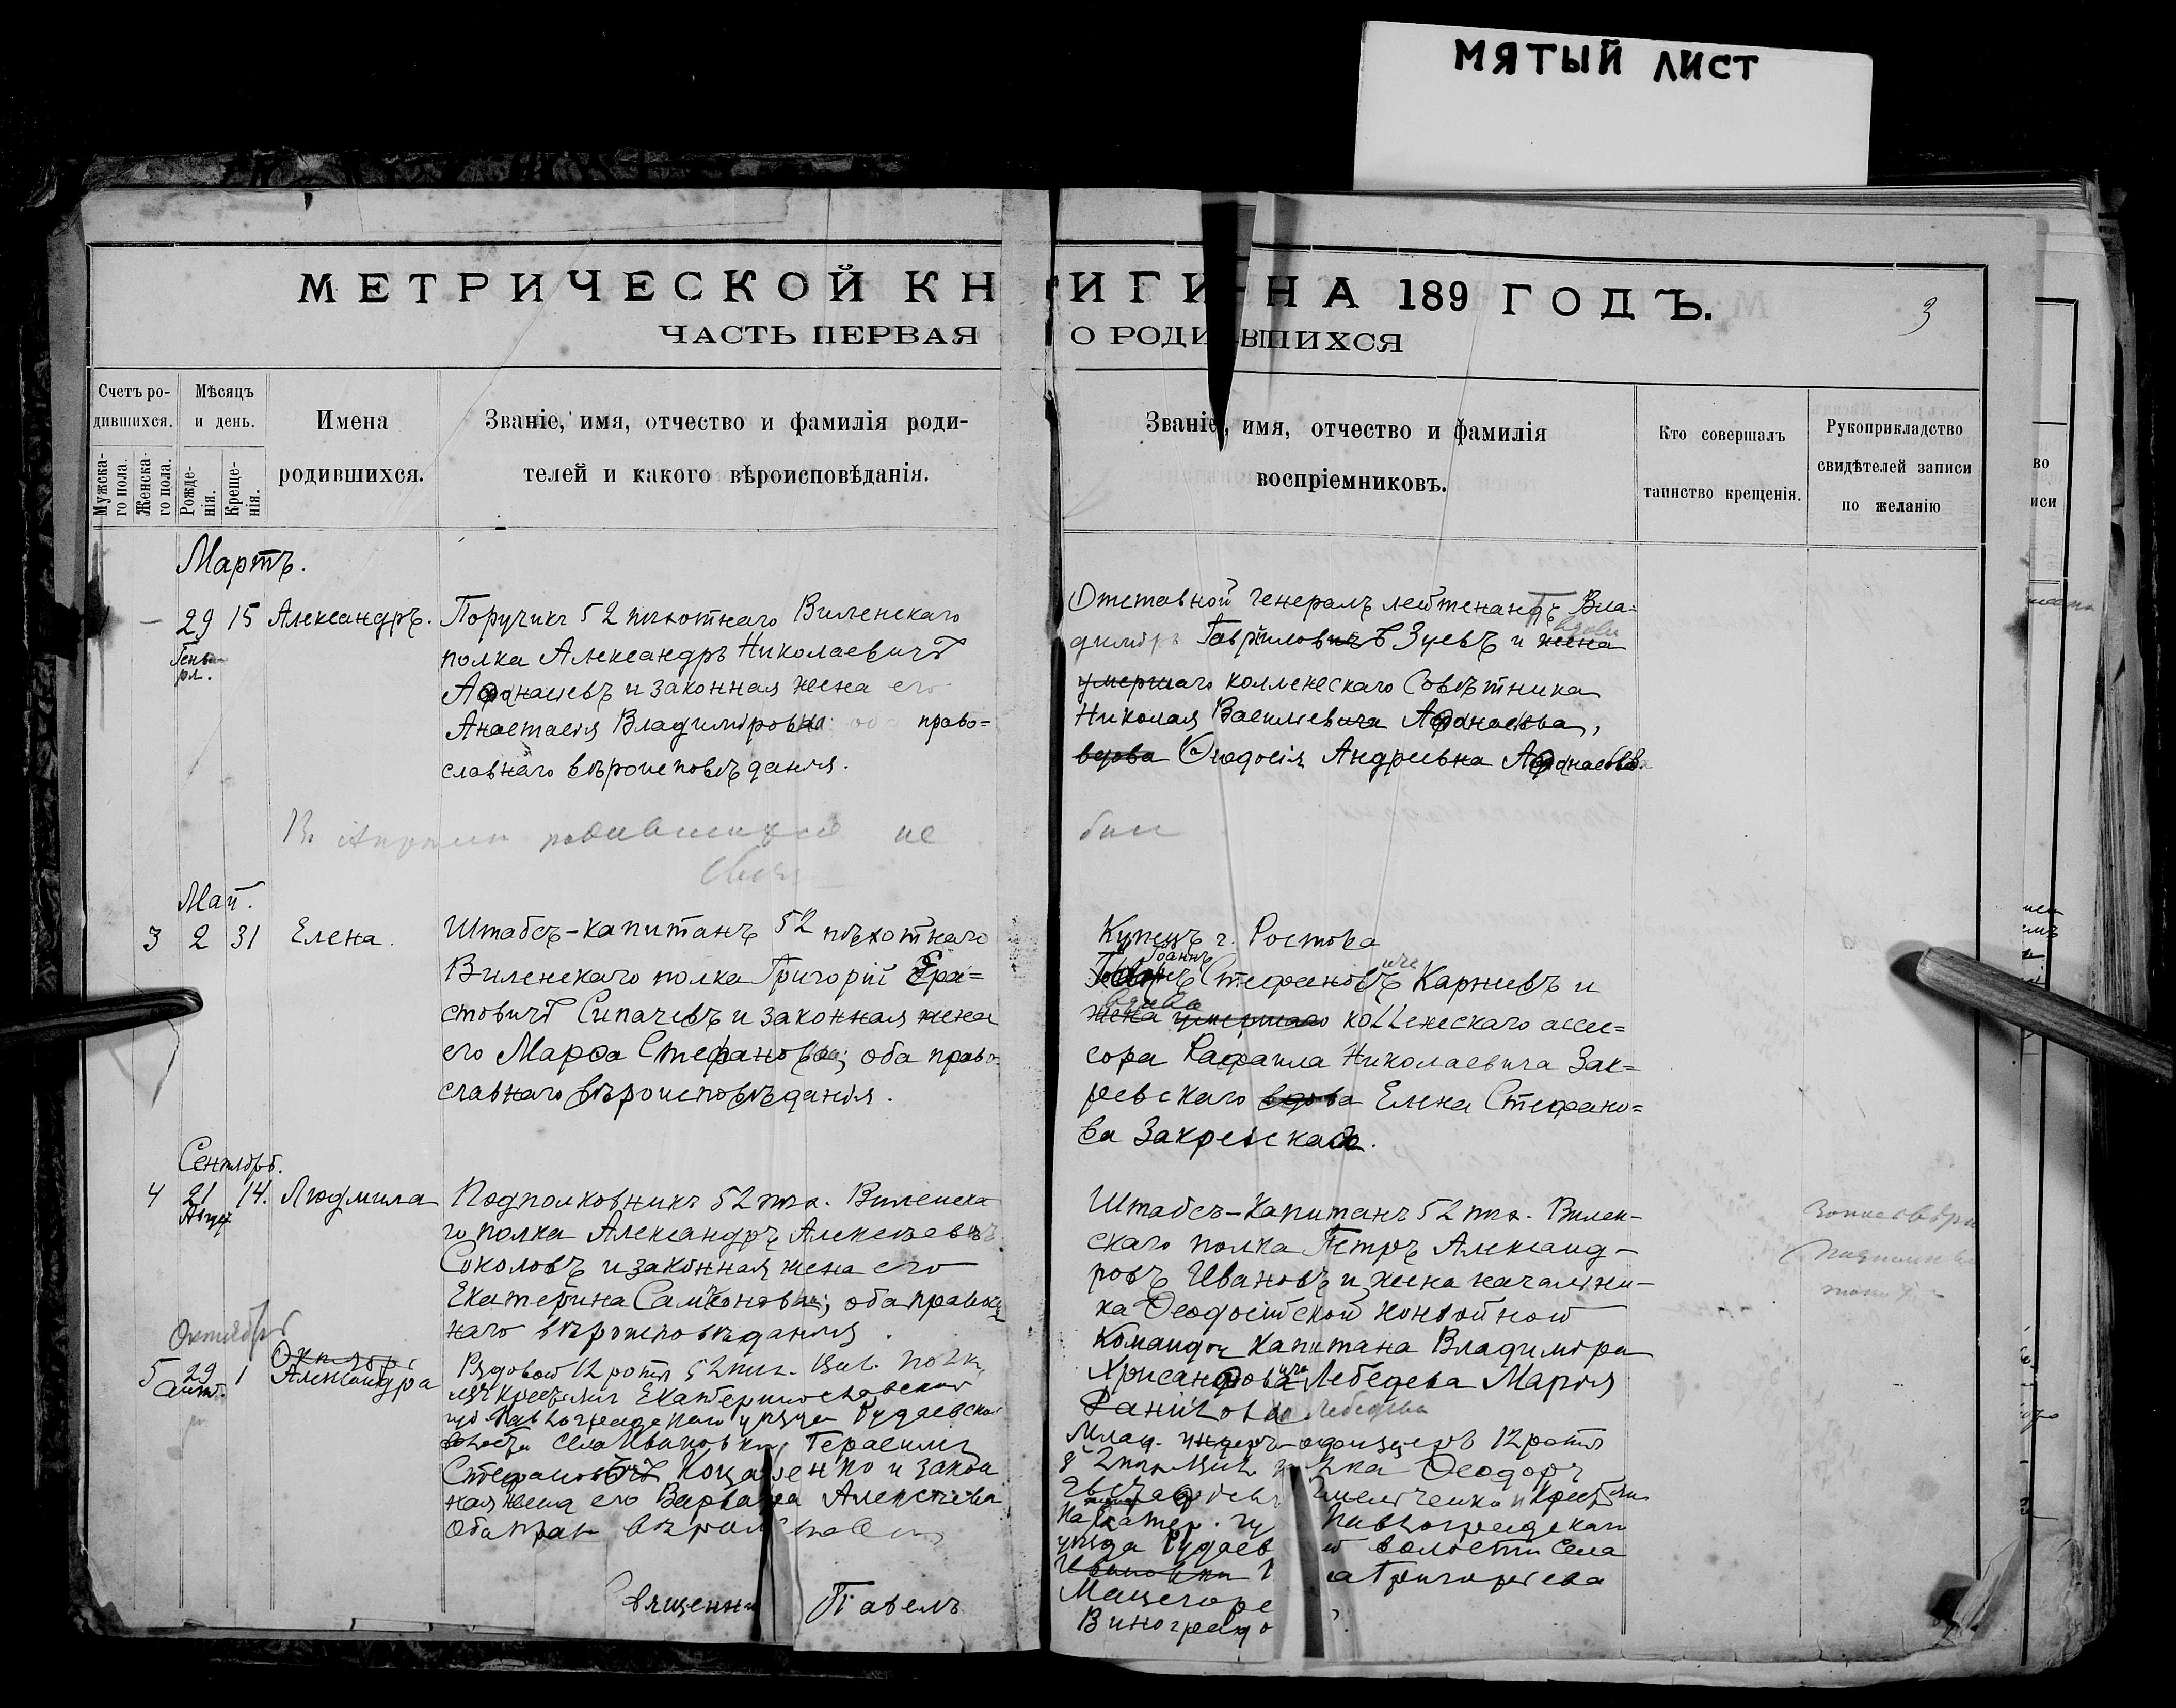 МЯТЫЙ ЛИСТ
МЕТРИЧЕСКОЙ КН
ИГИ НА 189 ГОДЪ.
3
ЧАСТЬ ПЕРВАЯ
О РОДИВШИХСЯ
Счетъ ро-
дившихся.
Мужска-
го пола.
Женска-
го пола.
Мѣсяцъ
и день.
Рожде-
нія.
Креще-
нія.
Имена
родившихся.
Званіе, имя, отчество и фамилія роди-
телей и какого вѣроисповѣданія.
Званіе, имя, отчество и фамилія
воспріемниковъ.
Кто совершалъ
таинство крещенія.
Рукоприкладство
свидѣтелей записи
по желанію
Мартъ.
29 15 Александръ.
Поручикъ 52 пѣхотнаго Виленскаго
полка Александръ Николаевичъ
Аѳанасьевъ и законная жена его
Анастасія Владимірова оба право=
славнаго вѣроисповѣданія.
Отставной генералъ лейтенантъ Вла=
диміръ Гавриловичъ Зуевъ и жена
вдова
умершаго коллежскаго Совѣтника
Николая Васильевича Аѳанасьева,
вдова Ѳеодосія Андреевна Аѳанасьева.
родившихся не
Май.
3 2 31 Елена.
Штабсъ-капитанъ 52 пѣхотнаго
Виленскаго полка Григорій Ера=
стовичъ Сипачевъ и законная жена
его Марѳа Стефанова; оба право
славнаго вѣроисповѣданія.
Купецъ г. Ростова
Іоаннъ
Стефановъ Карнѣевъ и
вдова
жена умершаго коллежскаго ассес=
сора Рафаила Николаевича Зак=
ревскаго вдова Елена Стефано=
ва Закревская.
Сентябрь.
4 21 14. Людмила
Авг.
Подполковникъ 52 пѣх. Виленска
го полка Александръ Алексѣевъ
Соколовъ и законная жена его
Екатерина Самсонова; оба православ
наго вѣроисповѣданія.
Штабсъ-Капитанъ 52 пѣх. Вилен-
скаго полка Петръ Александ-
ровъ Ивановъ и жена начальни-
ка Ѳеодосійской конвойной
команды Капитана Владиміра
Хрисанѳова Лебедева Марія
Лебедева
Октябрь
Октябрь
5 29 1 Александра
Сент.
Рядовой 12 роты 52 пѣх. Вил. полка
изъ крестьянъ Екатеринославской
губ Павлоградскаго уѣзда
села Ивановки Герасимъ
Стефановъ и закон
ная жена его Варвара Алексѣева
оба прав
Млад. унтеръ-офицеръ 12 роты
Ѳеодоръ
Павлоградскаго
уѣзда волости села
Ивановки Григорьева
Священникъ Павелъ
Виноградо